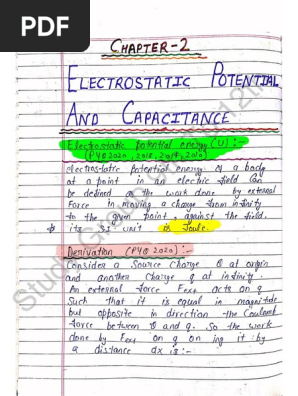 PDF
CHAPTER-2
ELECTROSTATIC POTENTIAL
AND CAPACITANCE
Electrostatic potential energy (U) :-
(PYQ 2020, 2018, 2017, 2010)
electrostatic potential energy of a body
at a point in an electric field can
be defined as the work done by external
Force in moving a charge from infinity
to the given point, against the field.
its SI unit is Joule.
Derivation (PYQ 2020) :-
Consider a Source Charge Q at origin
and another Charge q at infinity.
An external force Fext acts on q
Such that it is equal in magnitude
but opposite in direction the Coulomb
force between Q and q. So the work
done by Fext on q on ing it by
a distance dx is :-